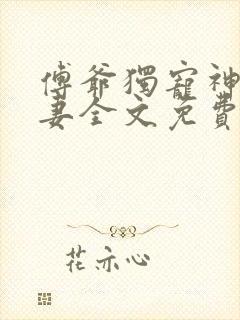 傅爺獨寵神
妻全文免費
花亦心